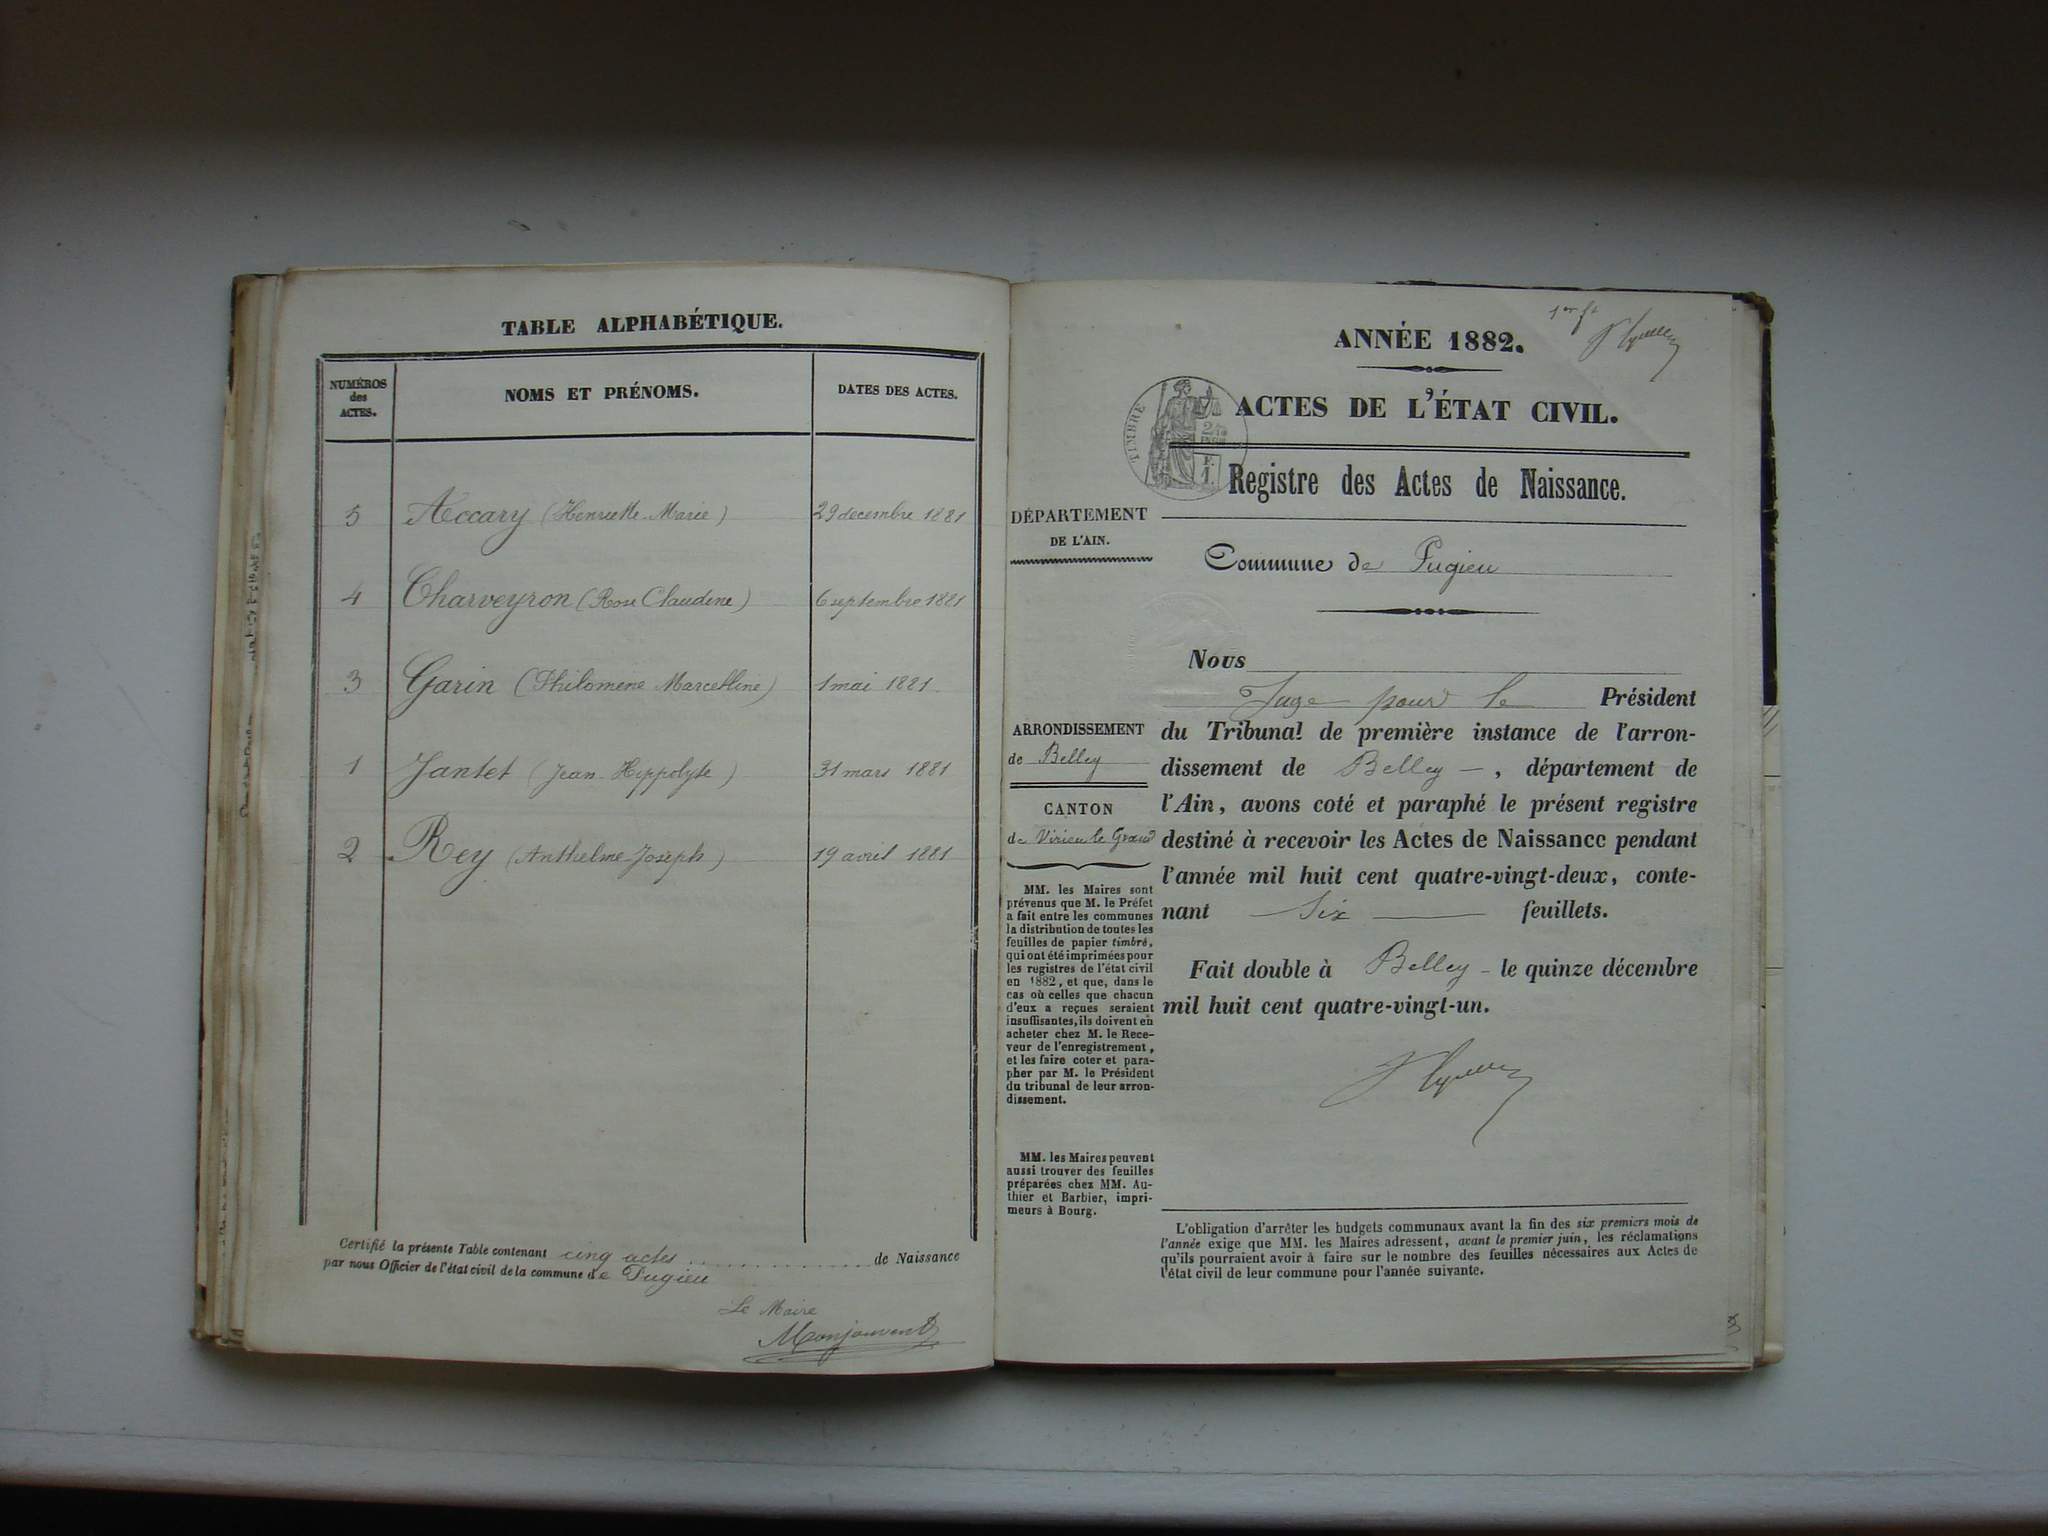 TABLE ALPHABÉTIQUE.
NUMÉROS
des
ACTES.
NOMS ET PRÉNOMS.
DATES DES ACTES.
5 Accary (Henriette-Marie) 29 decembre 1881
4 Charveyron (Rose Claudine) 6 septembre 1881
3 Garin (Philomene Marcelline) 1 mai 1881
1 Jantet (Jean-Hippolyte) 31 mars 1881
2 Rey (Anthelme-Joseph) 19 avril 1881
Certifié la présente Table contenant cinq actes de Naissance
par nous Officier de l'état civil de la commune de Pugieu
Le Maire
Monjouvent
1er ft
ANNÉE 1882.
ACTES DE L'ÉTAT CIVIL.
TIMBRE
Registre des Actes de Naissance.
DÉPARTEMENT
DE L'AIN.
Commune de Pugieu
ARRONDISSEMENT
de Belley
CANTON
de Virieu le Grand
MM. les Maires sont
prévenus que M. le Préfet
a fait entre les communes
la distribution de toutes les
feuilles de papier timbré,
qui ont été imprimées pour
les registres de l'état civil
en 1882, et que, dans le
cas où celles que chacun
d'eux a reçues seraient
insuffisantes, ils doivent en
acheter chez M. le Rece-
veur de l'enregistrement,
et les faire coter et para-
pher par M. le Président
du tribunal de leur arron-
dissement.
MM. les Maires peuvent
aussi trouver des feuilles
préparées chez MM. Au-
thier et Barbier, impri-
meurs à Bourg.
Nous
Juge pour le Président
du Tribunal de première instance de l'arron-
dissement de Belley, département de
l'Ain, avons coté et paraphé le présent registre
destiné à recevoir les Actes de Naissance pendant
l'année mil huit cent quatre-vingt-deux, conte-
nant Six feuillets.
Fait double à Belley le quinze décembre
mil huit cent quatre-vingt-un.
L'obligation d'arrêter les budgets communaux avant la fin des six premiers mois de
l'année exige que MM. les Maires adressent, avant le premier juin, les réclamations
qu'ils pourraient avoir à faire sur le nombre des feuilles nécessaires aux Actes de
l'état civil de leur commune pour l'année suivante.